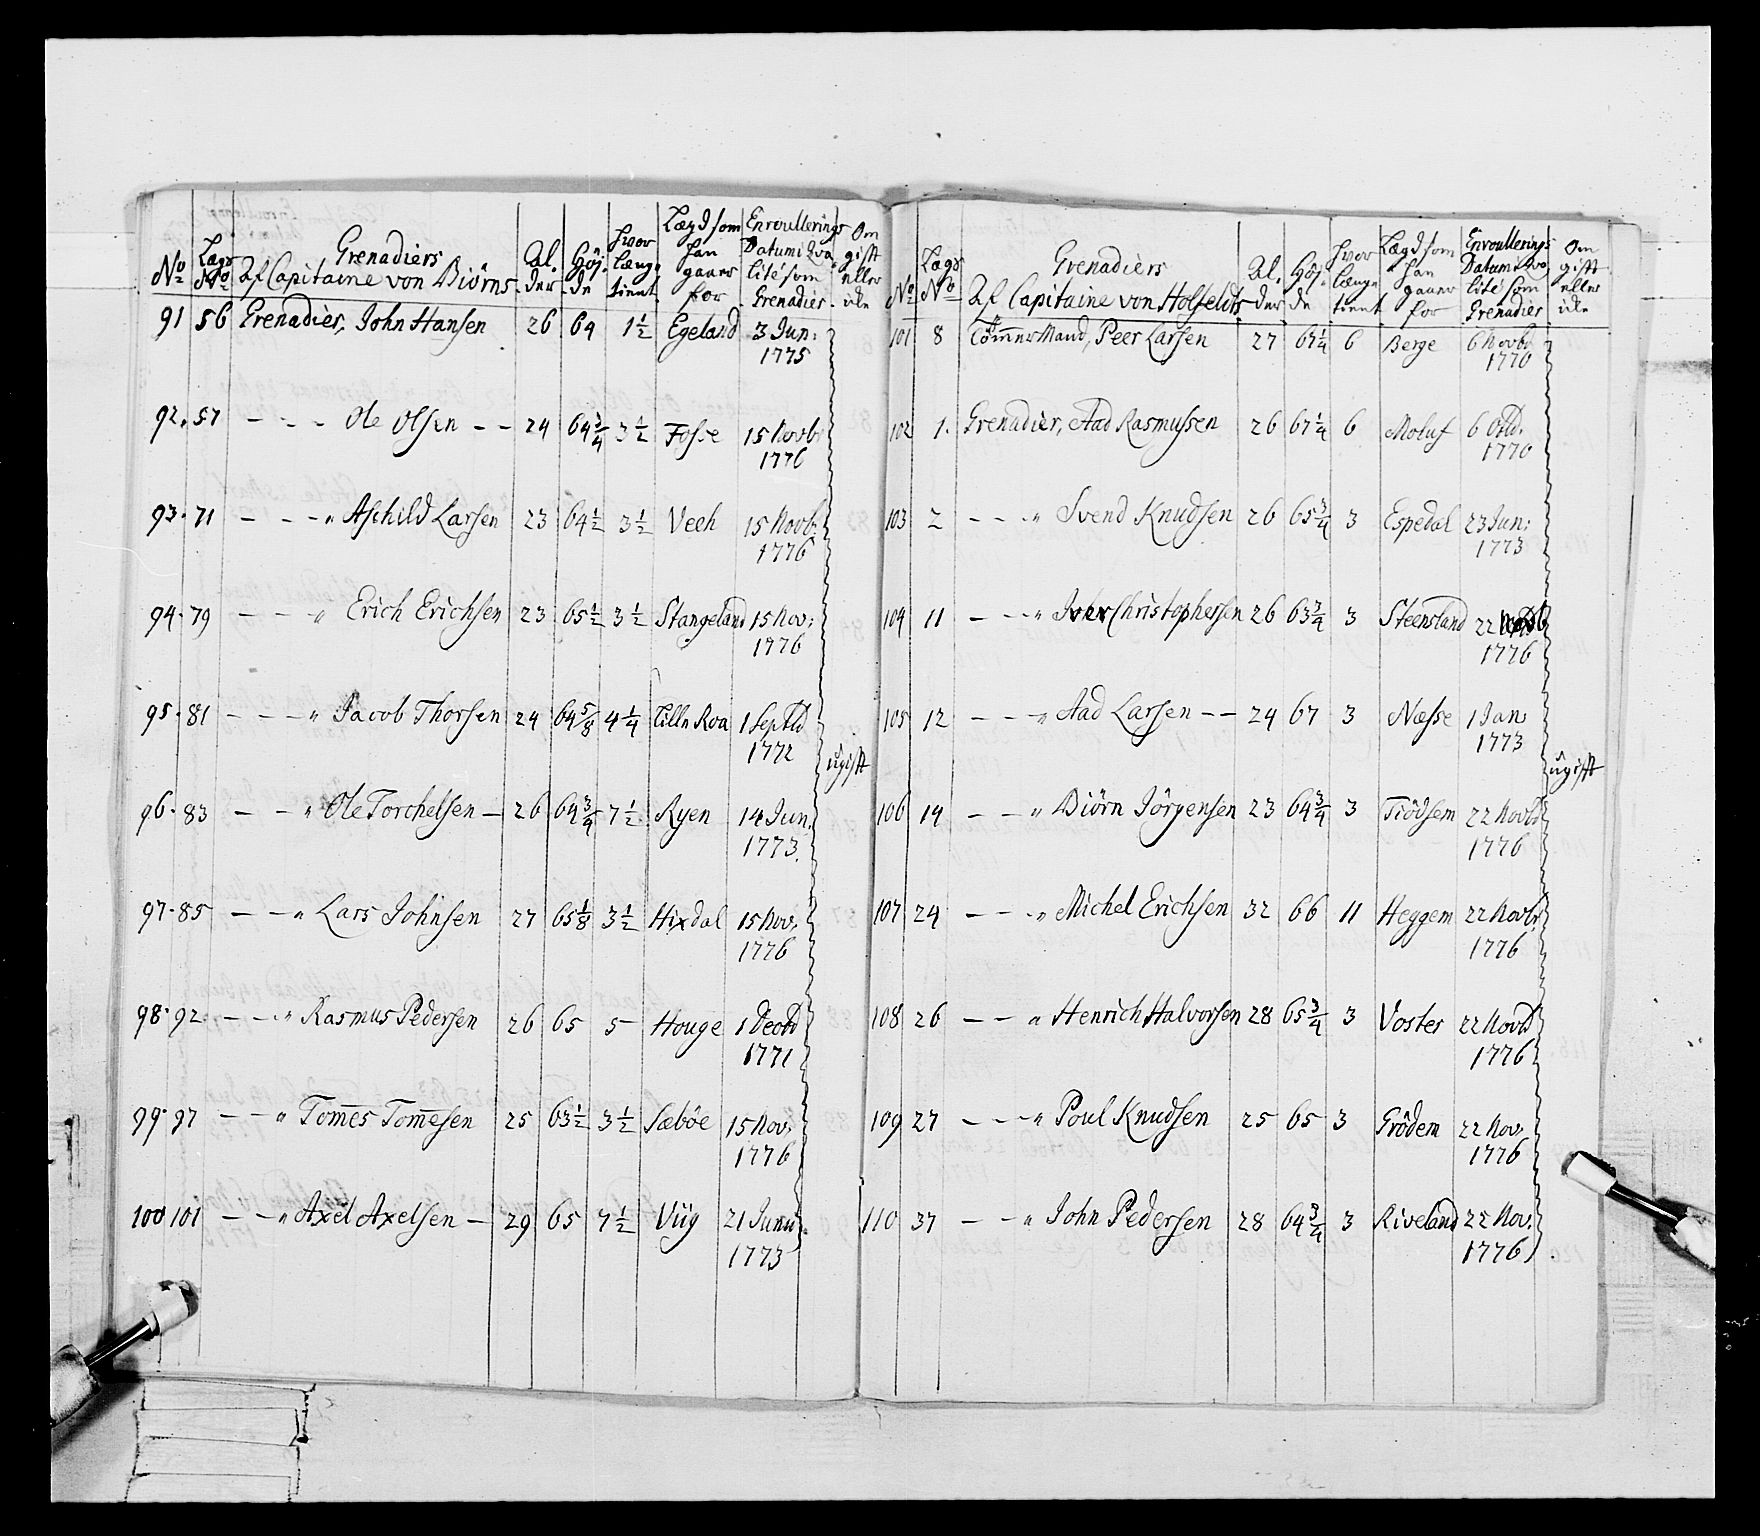 No Lægs No Grenadiers Af Capitaine von Biörns Al. der Höj. de hvor længe tient Lægd som han gaaer for Enroullerings Datum i Qva litè som Grenadier Om gift eller ide
91 56 Grenadier, John Hansen 26 64 1 1/2 Egeland 3 Jun: 1775
92. 57 – – – Ole Olsen – – 24 64 3/4 3 1/2 Fosse 15 Novb 1776
93. 71 – – – " Aschild Larsen 23 64 1/2 3 1/2 Veeh 15 Novb. 1776
94. 79 – – – " Erich Erichsen 23 65 1/2 3 1/2 Stangeland 15 Nov: 1776
95. 81 – – – " Jacob Thorsen 24 64 5/8 4 1/4 Lille Roa 1 Septbr 1772
ugift
96. 83 – – " Ole Torchelsen – 26 64 3/4 7 1/2 Ryen 14 Jun. 1773.
97. 85 – – " Lars Johnsen 27 65 1/8 3 1/2 Hixdal 15 Nov. 1776
98. 92. – – " Rasmus Pedersen 26 65 5 Houge 1 Decbr 1771
99. 97 – – " Tom̅es Tom̅esen 25 63 1/2 3 1/2 Sæbøe 15 Nov. 1776
100 101 – – " Axel Axelsen – 29 65 7 1/2 Viig 21 Junii 1773
No Lægs No Grenadiers Af Capitaine von Holfeldts Al. der Höj. de hvor længe tient Lægd som han gaaer for Enroullerings Datum i Qva litè som Grenadier Om gift eller ide
101 8 Töm̅er Mand, Peer Larsen 27 67 1/4 6 Berge 6 Novbr 1770
102 1. Grenadier, Aad Rasmussen 26 67 1/4 6 Moluf 6 1770
103 2 – – – " Svend Knudsen 26 65 3/4 3 Espedal 23 Jun: 1773
104 11 – – – " Christophersen 26 63 3/4 3 Steensland 22 Novb 1776
105 12 – – – " Aad Larsen – – 24 67 3 Næsse 1 Jan: 1773
ugift
106 14 – – – " Biörn Jörgensen 23 64 3/4 3 Tiödsem 22 Novbr 1776
107 24 – – – " Michel Erichsen 32 66 11 Heggem 22 Novbr. 1776
108 26 – – " Henrich Halvorsen 28 65 3/4 3 Voster 22 Novbr 1776
109 27 – – – " Poul Knudsen 25 65 3 Grödem 22 Nov. 1776
110 37 – – – " John Pedersen 28 64 3/4 3 Riveland 22 Nov. 1776